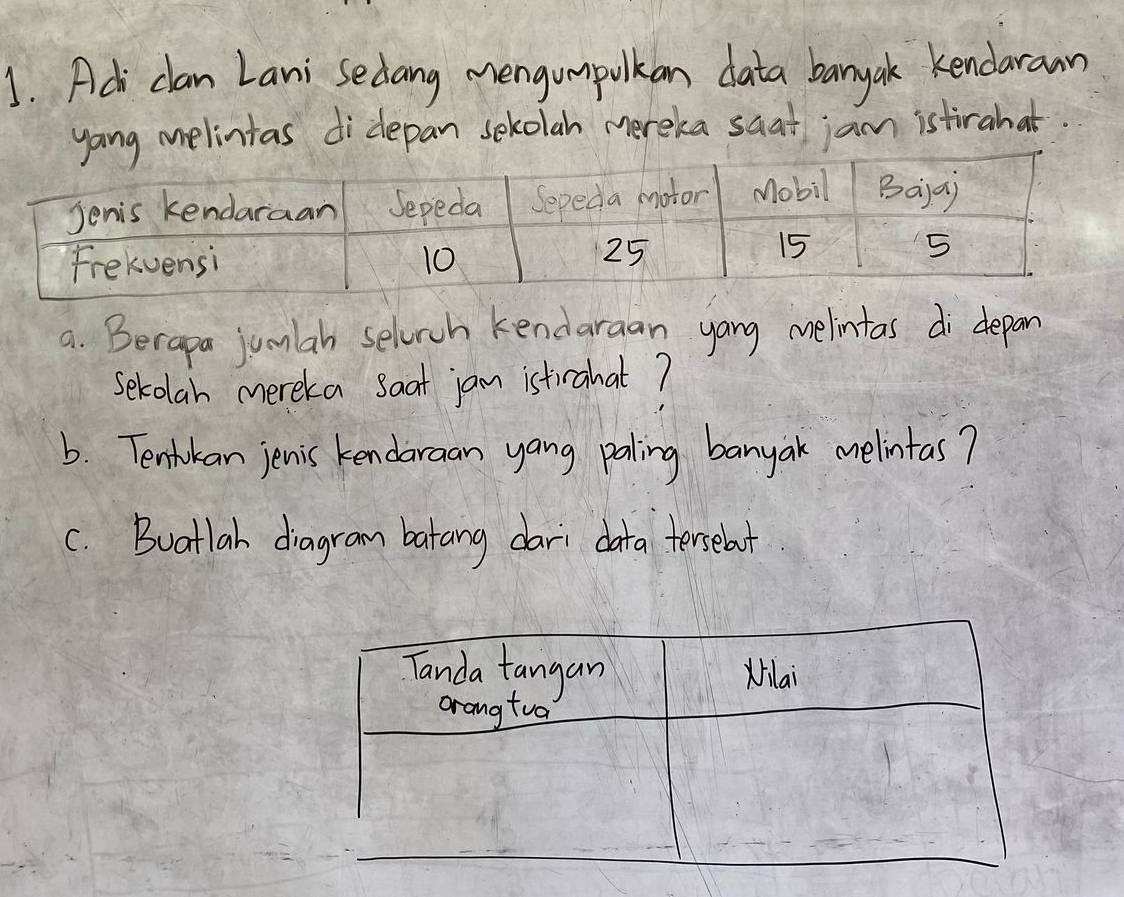 1. Adi dan Lani sedang mengumpulkan data banyak kendaraan
yang melintas di depan sekolah mereka saat jam istirahat.
Jenis kendaraan Sepeda Sepeda motor Mobil Bajaj
Frekuensi 10 25 15 5
a. Berapa jumlah seluruh kendaraan yang melintas di depan
sekolah mereka saat jam istirahat?
b. Tentukan jenis kendaraan yang paling banyak melintas?
c. Buatlah diagram batang dari data tersebut.
Tanda tangan Nilai
orang tua